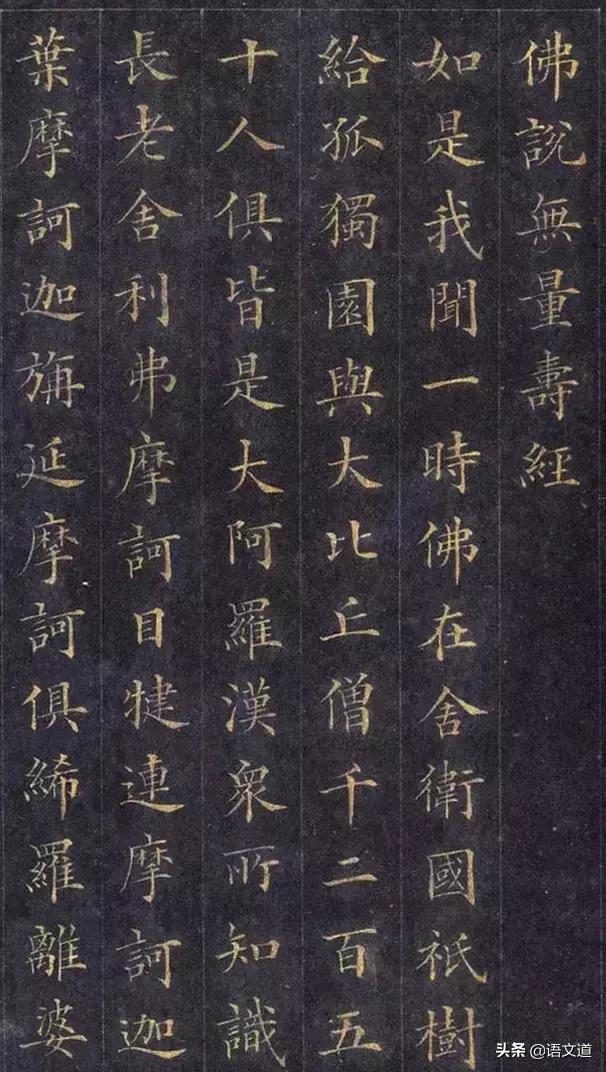 佛說無量壽經
如是我聞一時佛在舍衛國祇樹
給孤獨園與大比丘僧千二百五
十人俱皆是大阿羅漢眾所知識
長老舍利弗摩訶目犍連摩訶迦
葉摩訶迦旃延摩訶俱絺羅離婆
头条 @语文道